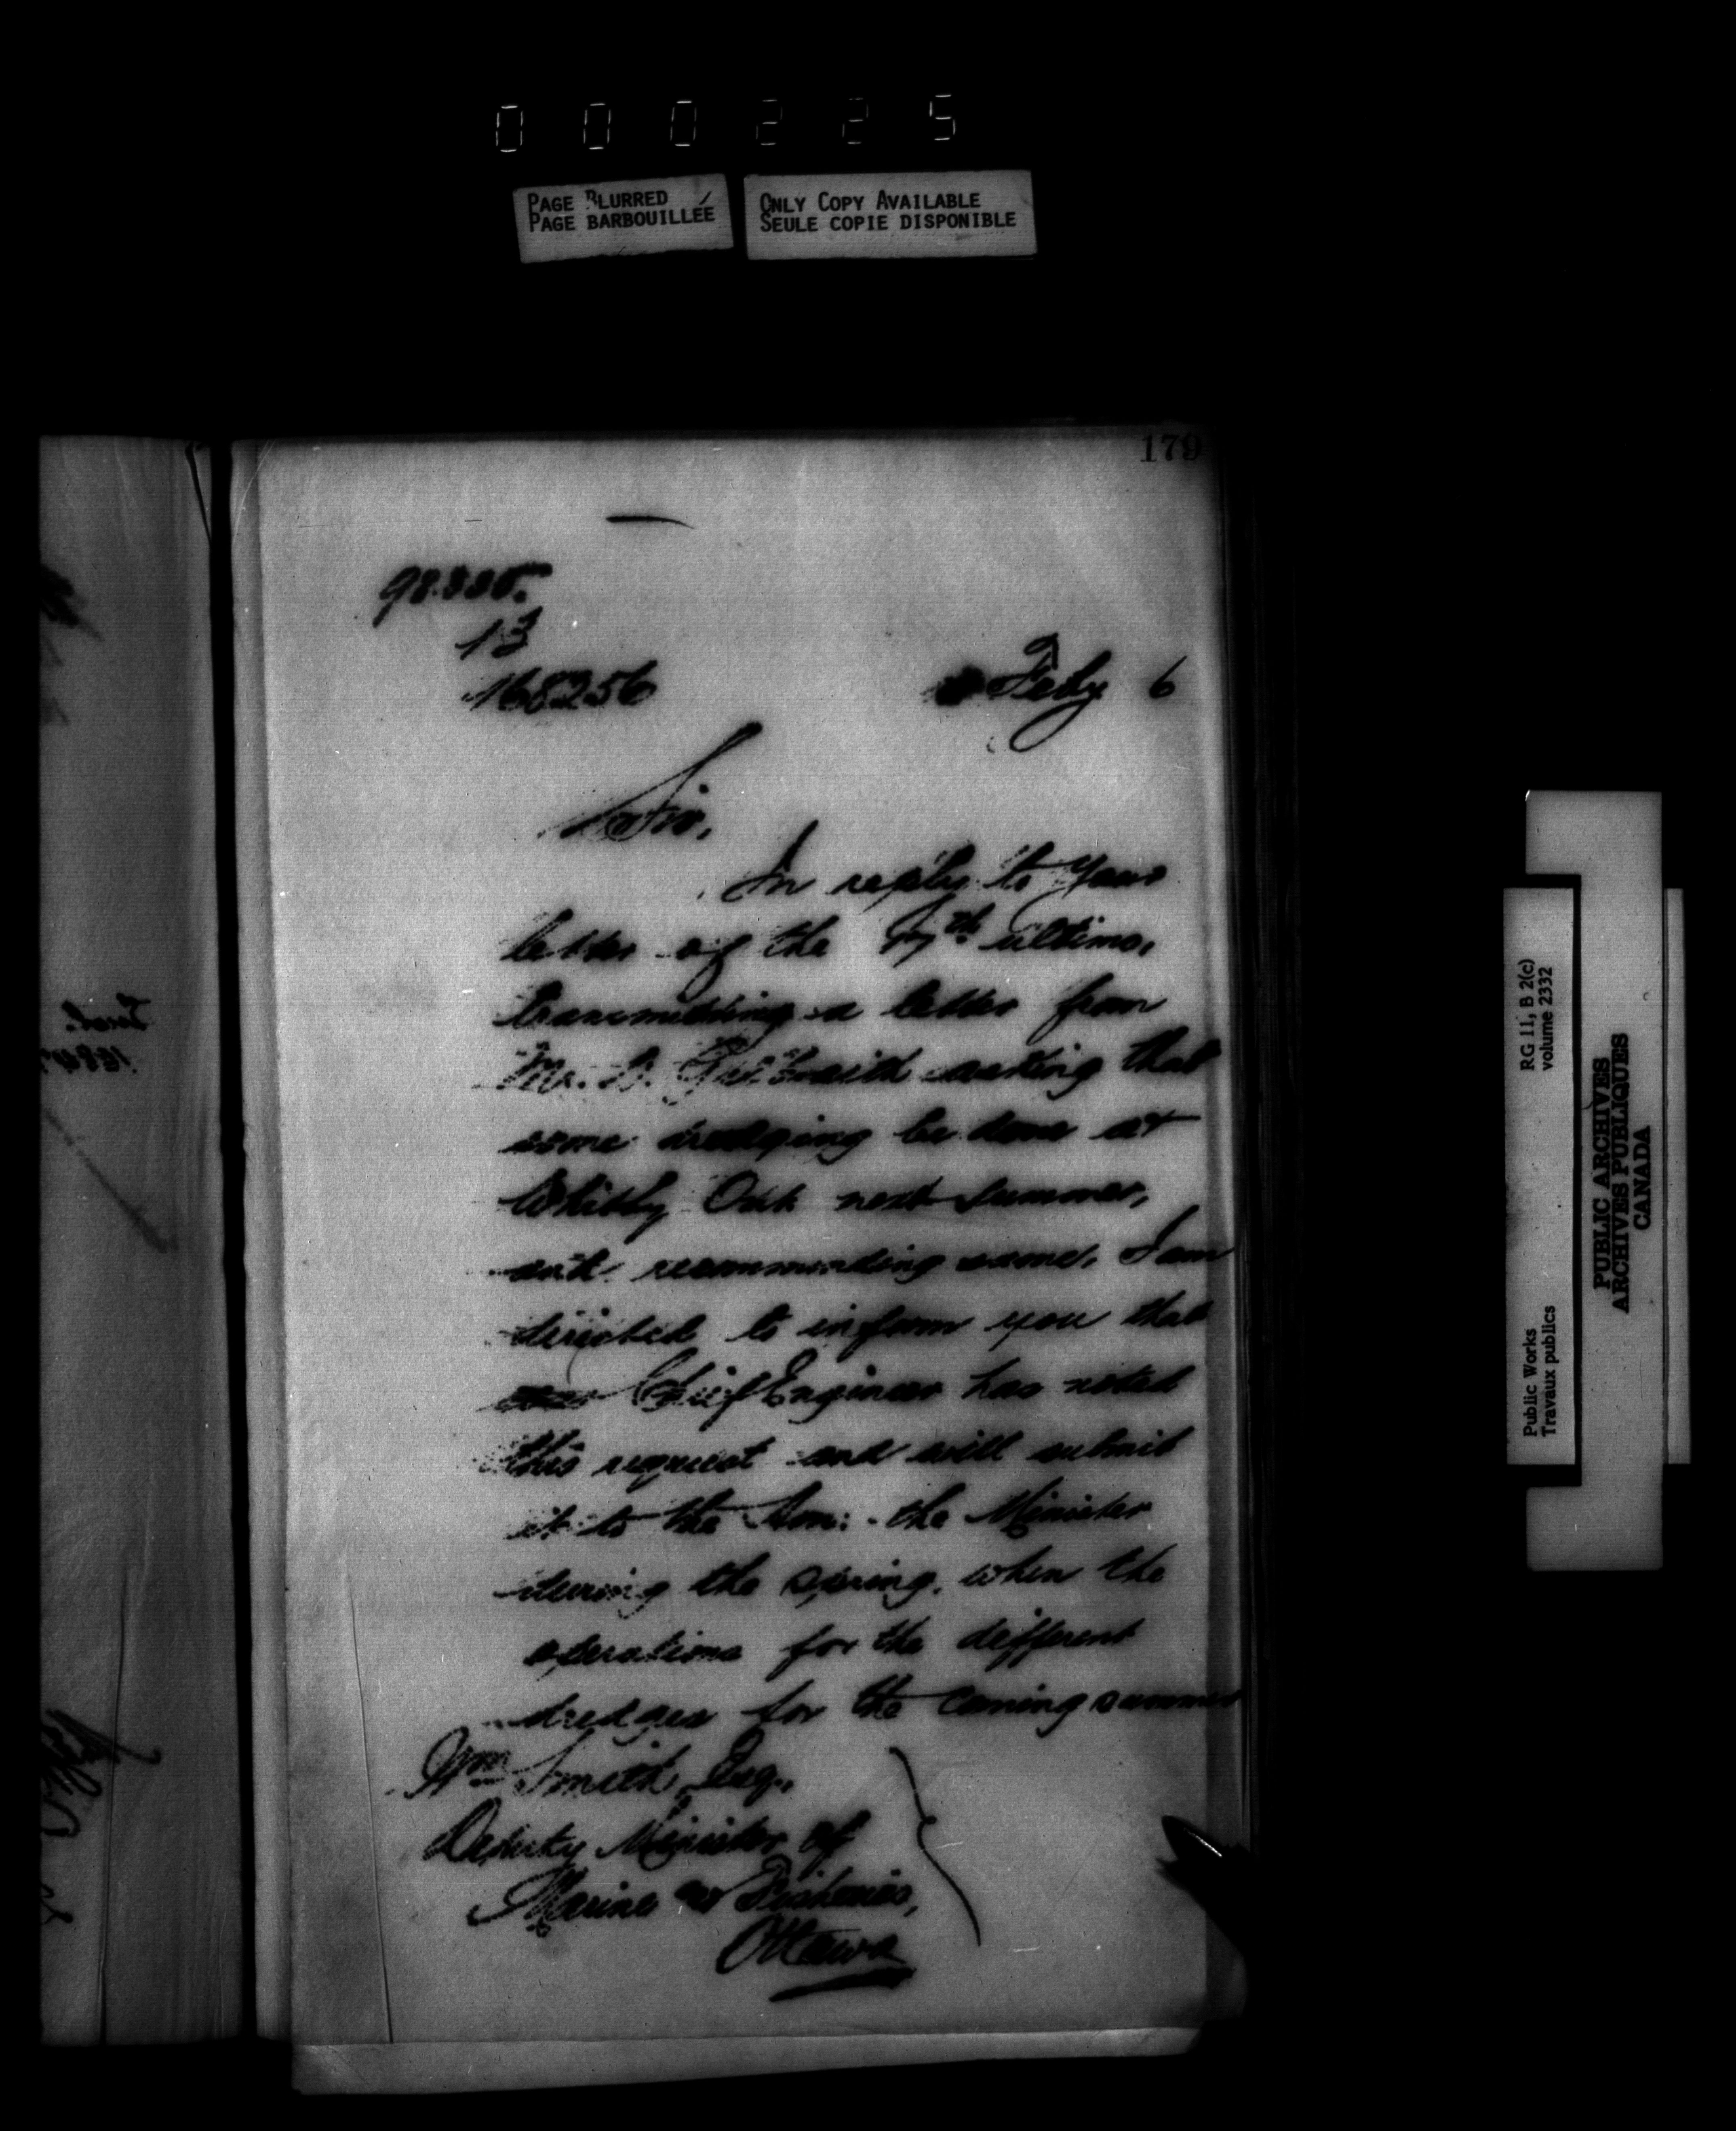 000225
PAGE BLURRED
PAGE BARBOUILLÉE
ONLY COPY AVAILABLE
SEULE COPIE DISPONIBLE
179
13
168256
Feby 6
Sir,
In reply to your
letter of the ultimo,
transmitting a letter from
Mr. asking that
some dredging be done at
Whitby Ont. next summer,
and recommending same, I am
directed to inform you that
Chief Engineer has noted
this request and will submit
it to the Hon: the Minister
during the spring, when the
operations for the different
dredges for the coming summer
Wm Smith, Esq.,
Deputy Minister of
Marine & Fisheries,
Ottawa
RG 11, B 2(c)
volume 2332
Public Works
Travaux publics
PUBLIC ARCHIVES
ARCHIVES PUBLIQUES
CANADA